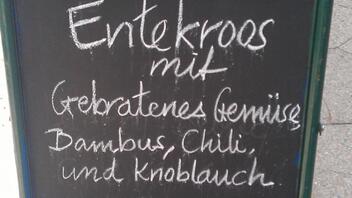 Entekroos
mit
Gebratenes Gemüse
Bambus, Chili,
und Knoblauch